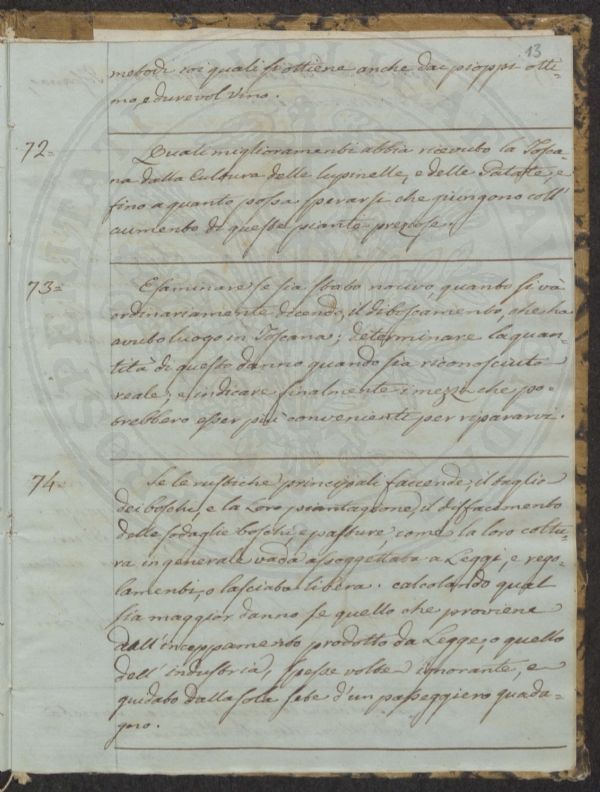 13
metodi coi quali si ottiene anche dai pioppi otti-
mo, e durevol vino.
72=
Quali miglioramenti abbia ricevuto la Tosca-
na dalla Cultura delle lupinelle, e delle Patate, e
fino a quanto possa sperarsi che giungono coll'
aumento di queste piante preziose.
73=
Esaminare se sia stato nocivo, quanto si và
ordinariamente dicendo, il diboscamento, che ha
avuto luogo in Toscana; determinare la quan-
tità di questo danno quando sia riconosciuto
reale, e indicare finalmente i mezzi che po-
trebbero esser più convenienti per ripararvi.
74=
Se le rustiche principali faccende, il taglio
dei boschi, e la loro piantagione, il disfacimento
delle sodaglie boschi, e pasture, come la loro coltu-
ra in generale vada assoggettata a Leggi, e rego-
lamenti, o lasciata libera. calcolando qual
sia maggior danno se quello che proviene
dall'inceppamento prodotto da Legge, o quello
dell'industria, spesse volte ignorante, e
guidato dalla sola sete d'un passeggiero guada-
gno.
PROSPERITATI